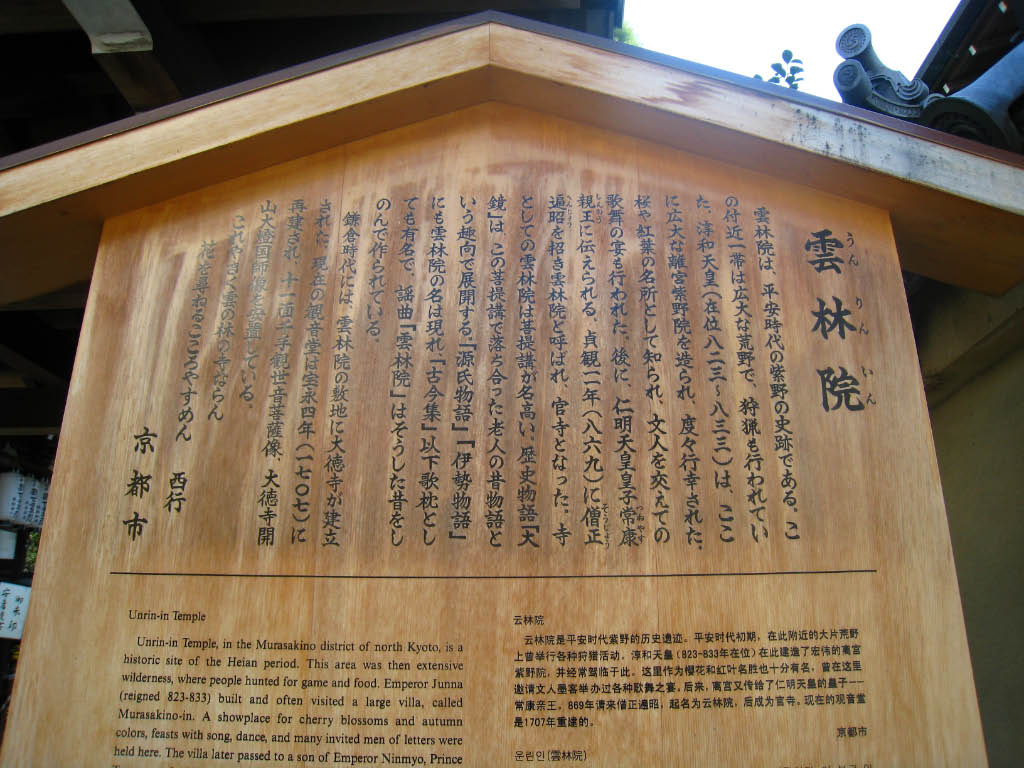 雲林院
うんりんいん
雲林院は、平安時代の紫野の史跡である。こ
の付近一帯は広大な荒野で、狩猟も行われてい
た。淳和天皇（在位八二三～八三三）は、ここ
に広大な離宮紫野院を造られ、度々行幸された。
桜や紅葉の名所として知られ、文人を交えての
歌舞の宴も行われた。後に、仁明天皇皇子常康
親王に伝えられる。貞観一一年（八六九）に僧正
遍昭を招き雲林院と呼ばれ、官寺となった。寺
としての雲林院は菩提講が名高い。歴史物語「大
鏡」は、この菩提講で落ち合った老人の昔物語と
いう趣向で展開する。「源氏物語」「伊勢物語」
にも雲林院の名は現れ「古今集」以下歌枕とし
ても有名で、謡曲「雲林院」はそうした昔をし
のんで作られている。
鎌倉時代には、雲林院の敷地に大徳寺が建立
された。現在の観音堂は宝永四年（一七〇七）に
再建され、十一面千手観世音菩薩像、大徳寺開
山大燈国師像を安置している。
これやきく雲の林の寺ならん
花を尋ねるこころやすめん
西行
京都市
Unrin-in Temple
Unrin-in Temple, in the Murasakino district of north Kyoto, is a
historic site of the Heian period. This area was then extensive
wilderness, where people hunted for game and food. Emperor Junna
(reigned 823-833) built and often visited a large villa, called
Murasakino-in. A showplace for cherry blossoms and autumn
colors, feasts with song, dance, and many invited men of letters were
held here. The villa later passed to a son of Emperor Ninmyo, Prince
云林院
云林院是平安时代紫野的历史遗迹。平安时代初期，在此附近的大片荒野
上曾举行各种狩猎活动。淳和天皇（823-833年在位）在此建造了宏伟的离宫
紫野院，并经常驾临于此。这里作为樱花和红叶名胜也十分有名，曾在这里
邀请文人墨客举办过各种歌舞之宴。后来，离宫又传给了仁明天皇的皇子——
常康亲王。869年请来僧正遍昭，起名为云林院，后成为官寺。现在的观音堂
是1707年重建的。
京都市
운린인(雲林院)